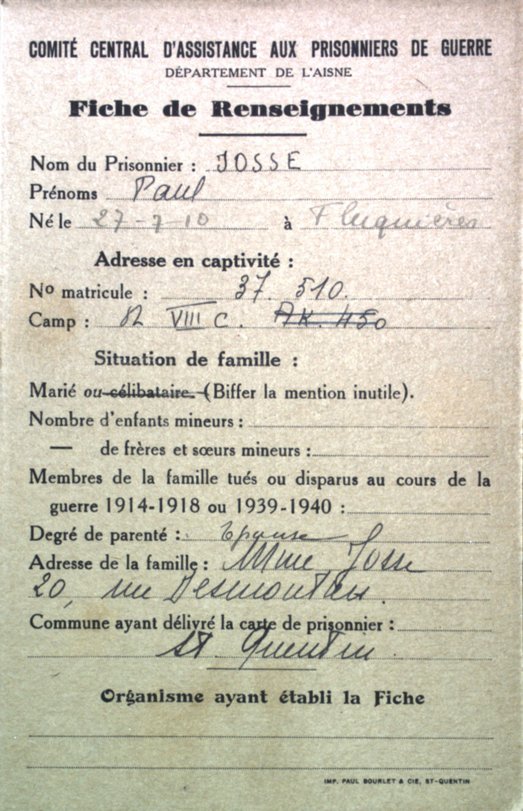 COMITÉ CENTRAL D'ASSISTANCE AUX PRISONNIERS DE GUERRE
DÉPARTEMENT DE L'AISNE
Fiche de Renseignements
Nom du Prisonnier : JOSSE
Prénoms Paul
Né le 27-7-10 à Fluquières
Adresse en captivité :
No matricule : 37.510.
Camp : VIII C. AK. 450
Situation de famille :
Marié ou célibataire. (Biffer la mention inutile).
Nombre d'enfants mineurs :
— de frères et sœurs mineurs :
Membres de la famille tués ou disparus au cours de la
guerre 1914-1918 ou 1939-1940 :
Degré de parenté : épouse
Adresse de la famille : Mme Josse
20, rue Desmoutais.
Commune ayant délivré la carte de prisonnier :
St. Quentin.
Organisme ayant établi la Fiche
IMP. PAUL BOURLET & CIE, ST-QUENTIN